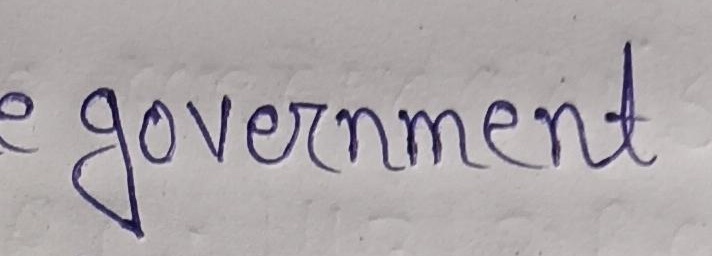 e government